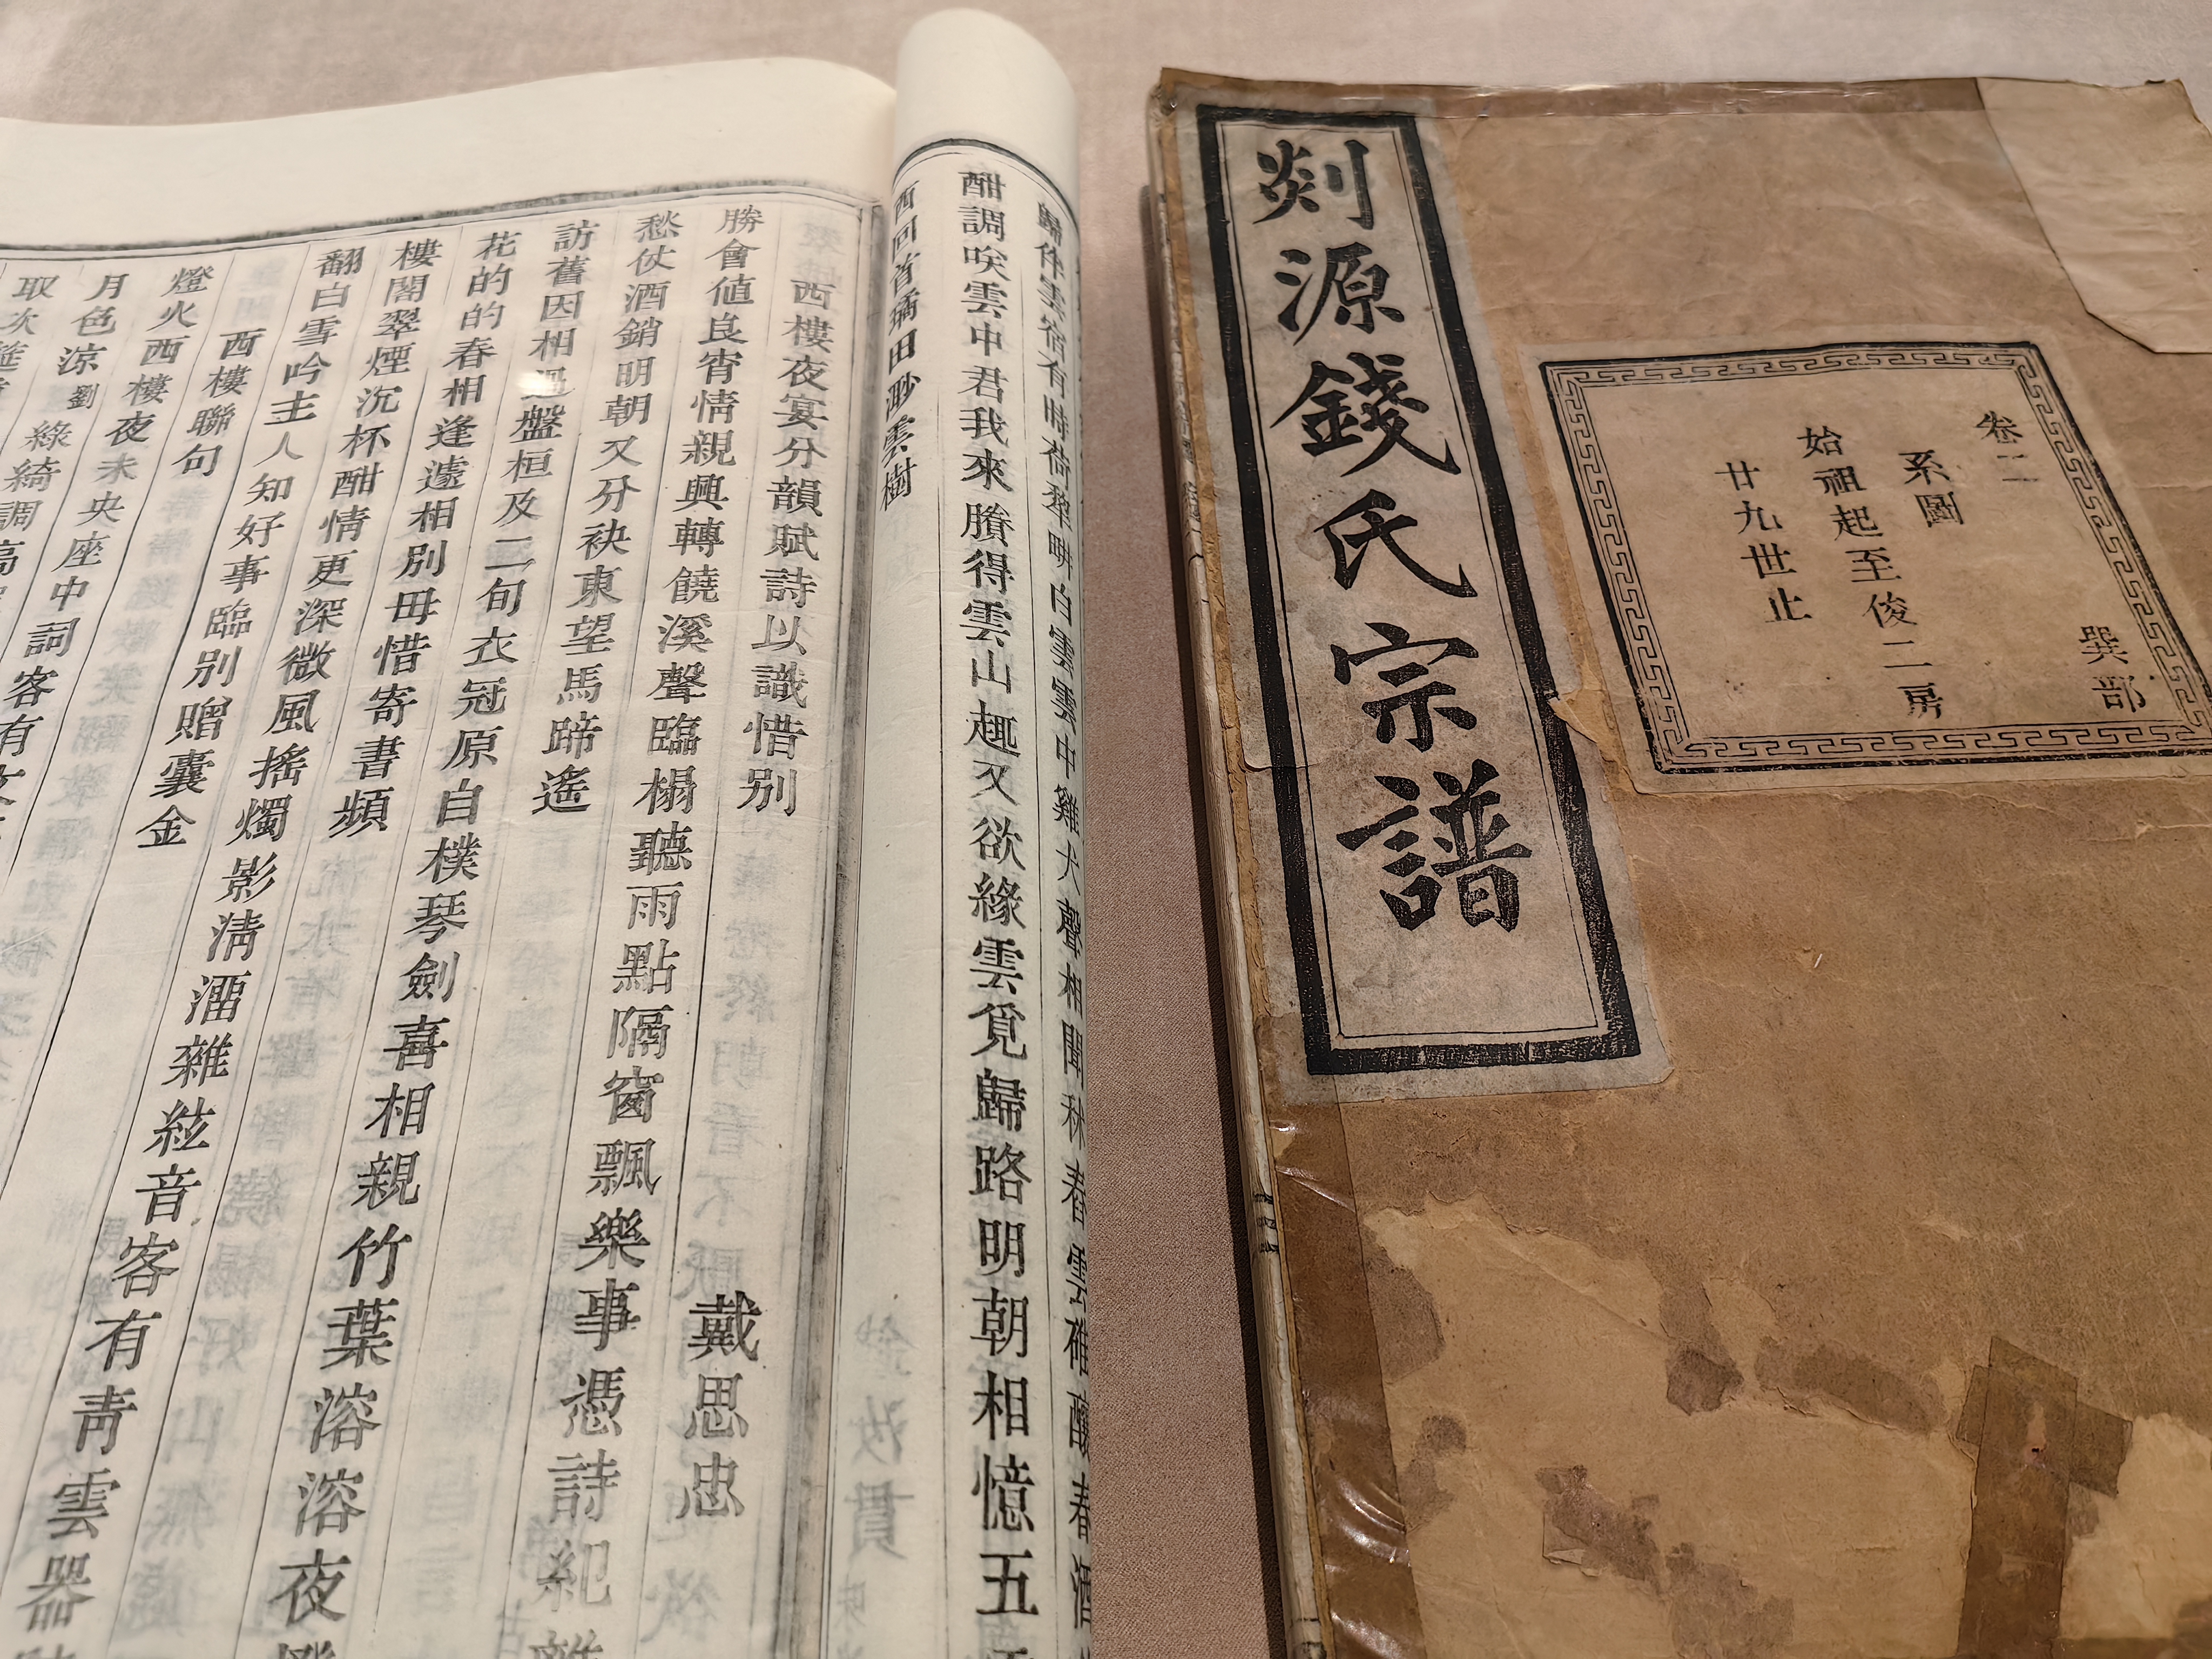 歸伴雲宿有時荷犂畊白雲雲中雞犬聲相聞秫舂雲碓釀春酒
酣調唉雲中君我來賸得雲山趣又欲緣雲覓歸路明朝相憶五
西回首矞田渺雲樹
西樓夜宴分韻賦詩以識惜别
戴思忠
勝會値良宵情親興轉饒溪聲臨榻聽雨點隔窗飄樂事憑詩紀離
愁仗酒銷明朝又分袂東望馬蹄遙
訪舊因相過盤桓及二旬衣冠原自樸琴劍喜相親竹葉溶溶夜
花的的春相逢遽相别毋惜寄書頻
樓閣翠煙沉杯酣情更深微風搖燭影淸霤雜絃音客有靑雲器
翻白雪吟主人知好事臨别贈囊金
西樓聯句
燈火西樓夜未央座中詞客有文
月色涼劉綠綺調高
取次筵
剡源錢氏宗譜
巽部
卷二
系圖
始祖起至俊二房
廿九世止